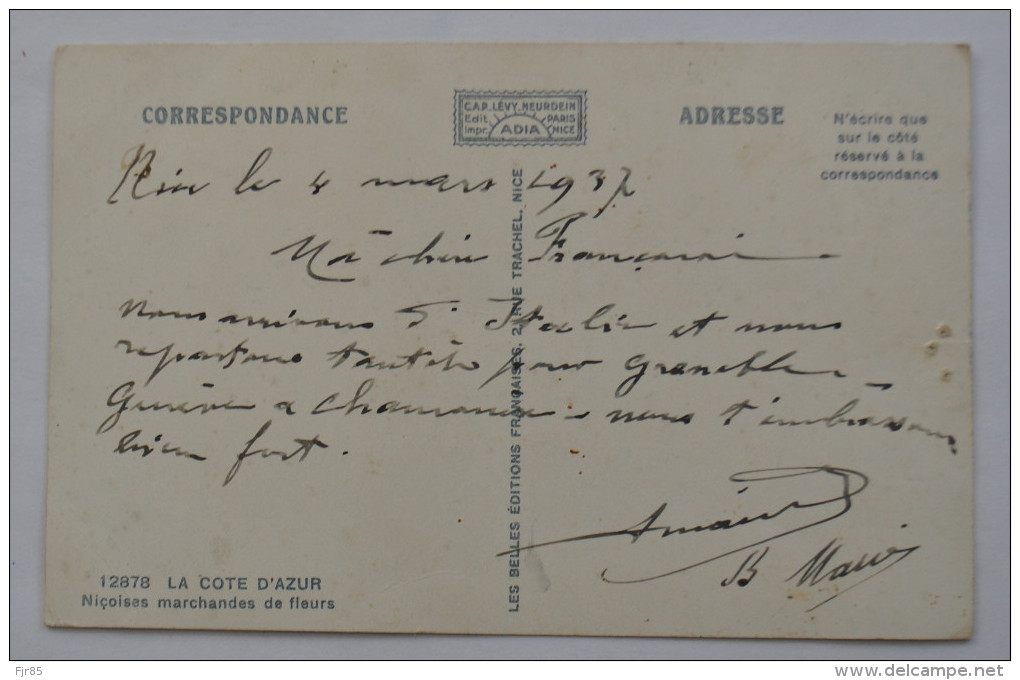 CORRESPONDANCE
C.A.P. LÉVY. NEURDEIN
Edit. PARIS
Impr. ADIA NICE
ADRESSE
N'écrire que
sur le côté
réservé à la
correspondance
Nice le 4 mars 1937
Ma chère Françoise
nous arrivons d'Italie et nous
repartons tantôt pour Grenoble
Genève & Chamonix - nous t'embrassons
bien fort.
B
LES BELLES ÉDITIONS FRANÇAISES. 2, RUE TRACHEL, NICE
12878 LA COTE D'AZUR
Niçoises marchandes de fleurs
Fjr85
delcampe.net